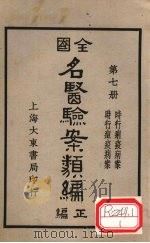 第七册
時行疫病案
時行疫病案
全國
名醫驗案類編
正編
上海大東書局印行
1